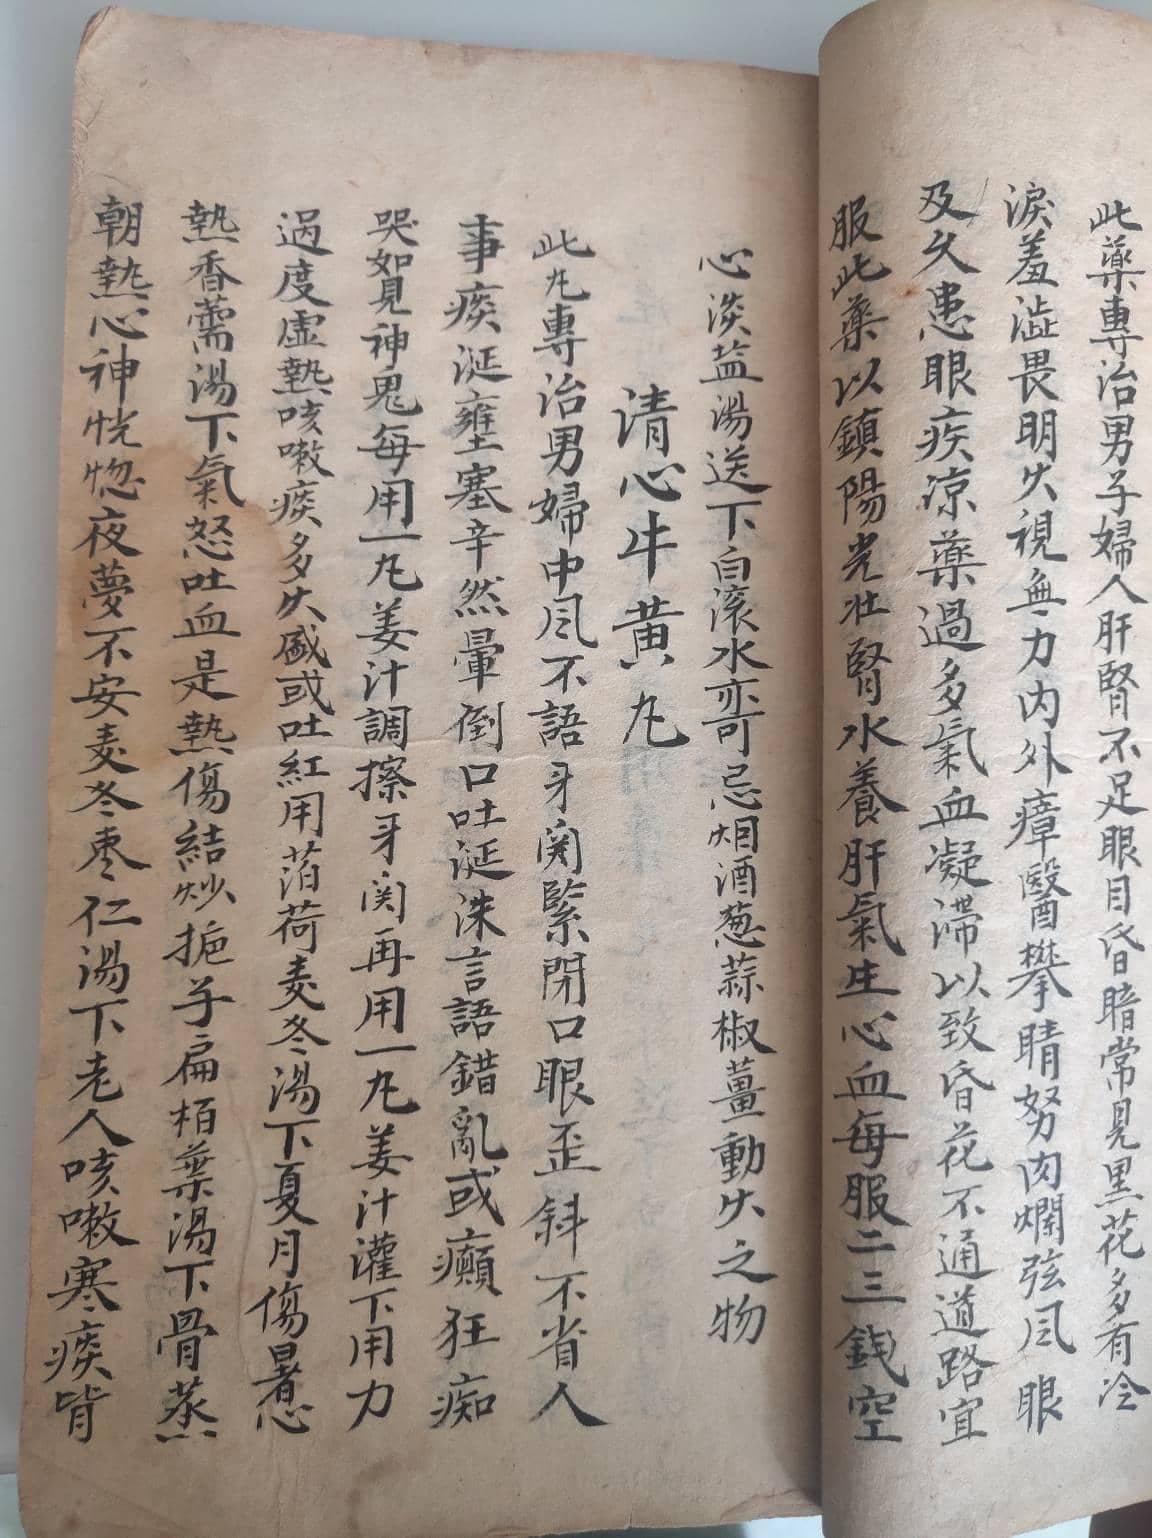 此藥專治男子婦人肝腎不足眼目昏暗常見黑花多有冷
淚羞澁畏明久視無力内外瘴醫攀睛努肉爛弦風眼
及久患眼疾凉藥過多氣血凝滯以致昏花不通道路宜
服此藥以鎮陽光壯腎水養肝氣生心血每服二三錢空
心淡盐湯送下白滚水亦可忌烟酒葱蒜椒薑動火之物
清心牛黄丸
此丸專治男婦中風不語牙関緊閉口眼歪斜不省人
事痰涎壅塞辛然暈倒口吐涎洙言語錯亂或癲狂痴
哭如見神鬼每用一丸姜汁調擦牙関再用一丸姜汁灌下用力
過度虚熱咳嗽痰多火盛或吐紅用萡荷麦冬湯下夏月傷暑心
熱香薷湯下氣怒吐血是熱傷結炒梔子扁栢葉湯下骨蒸
朝熱心神恍惚夜夢不安麦冬枣仁湯下老人咳嗽寒痰背